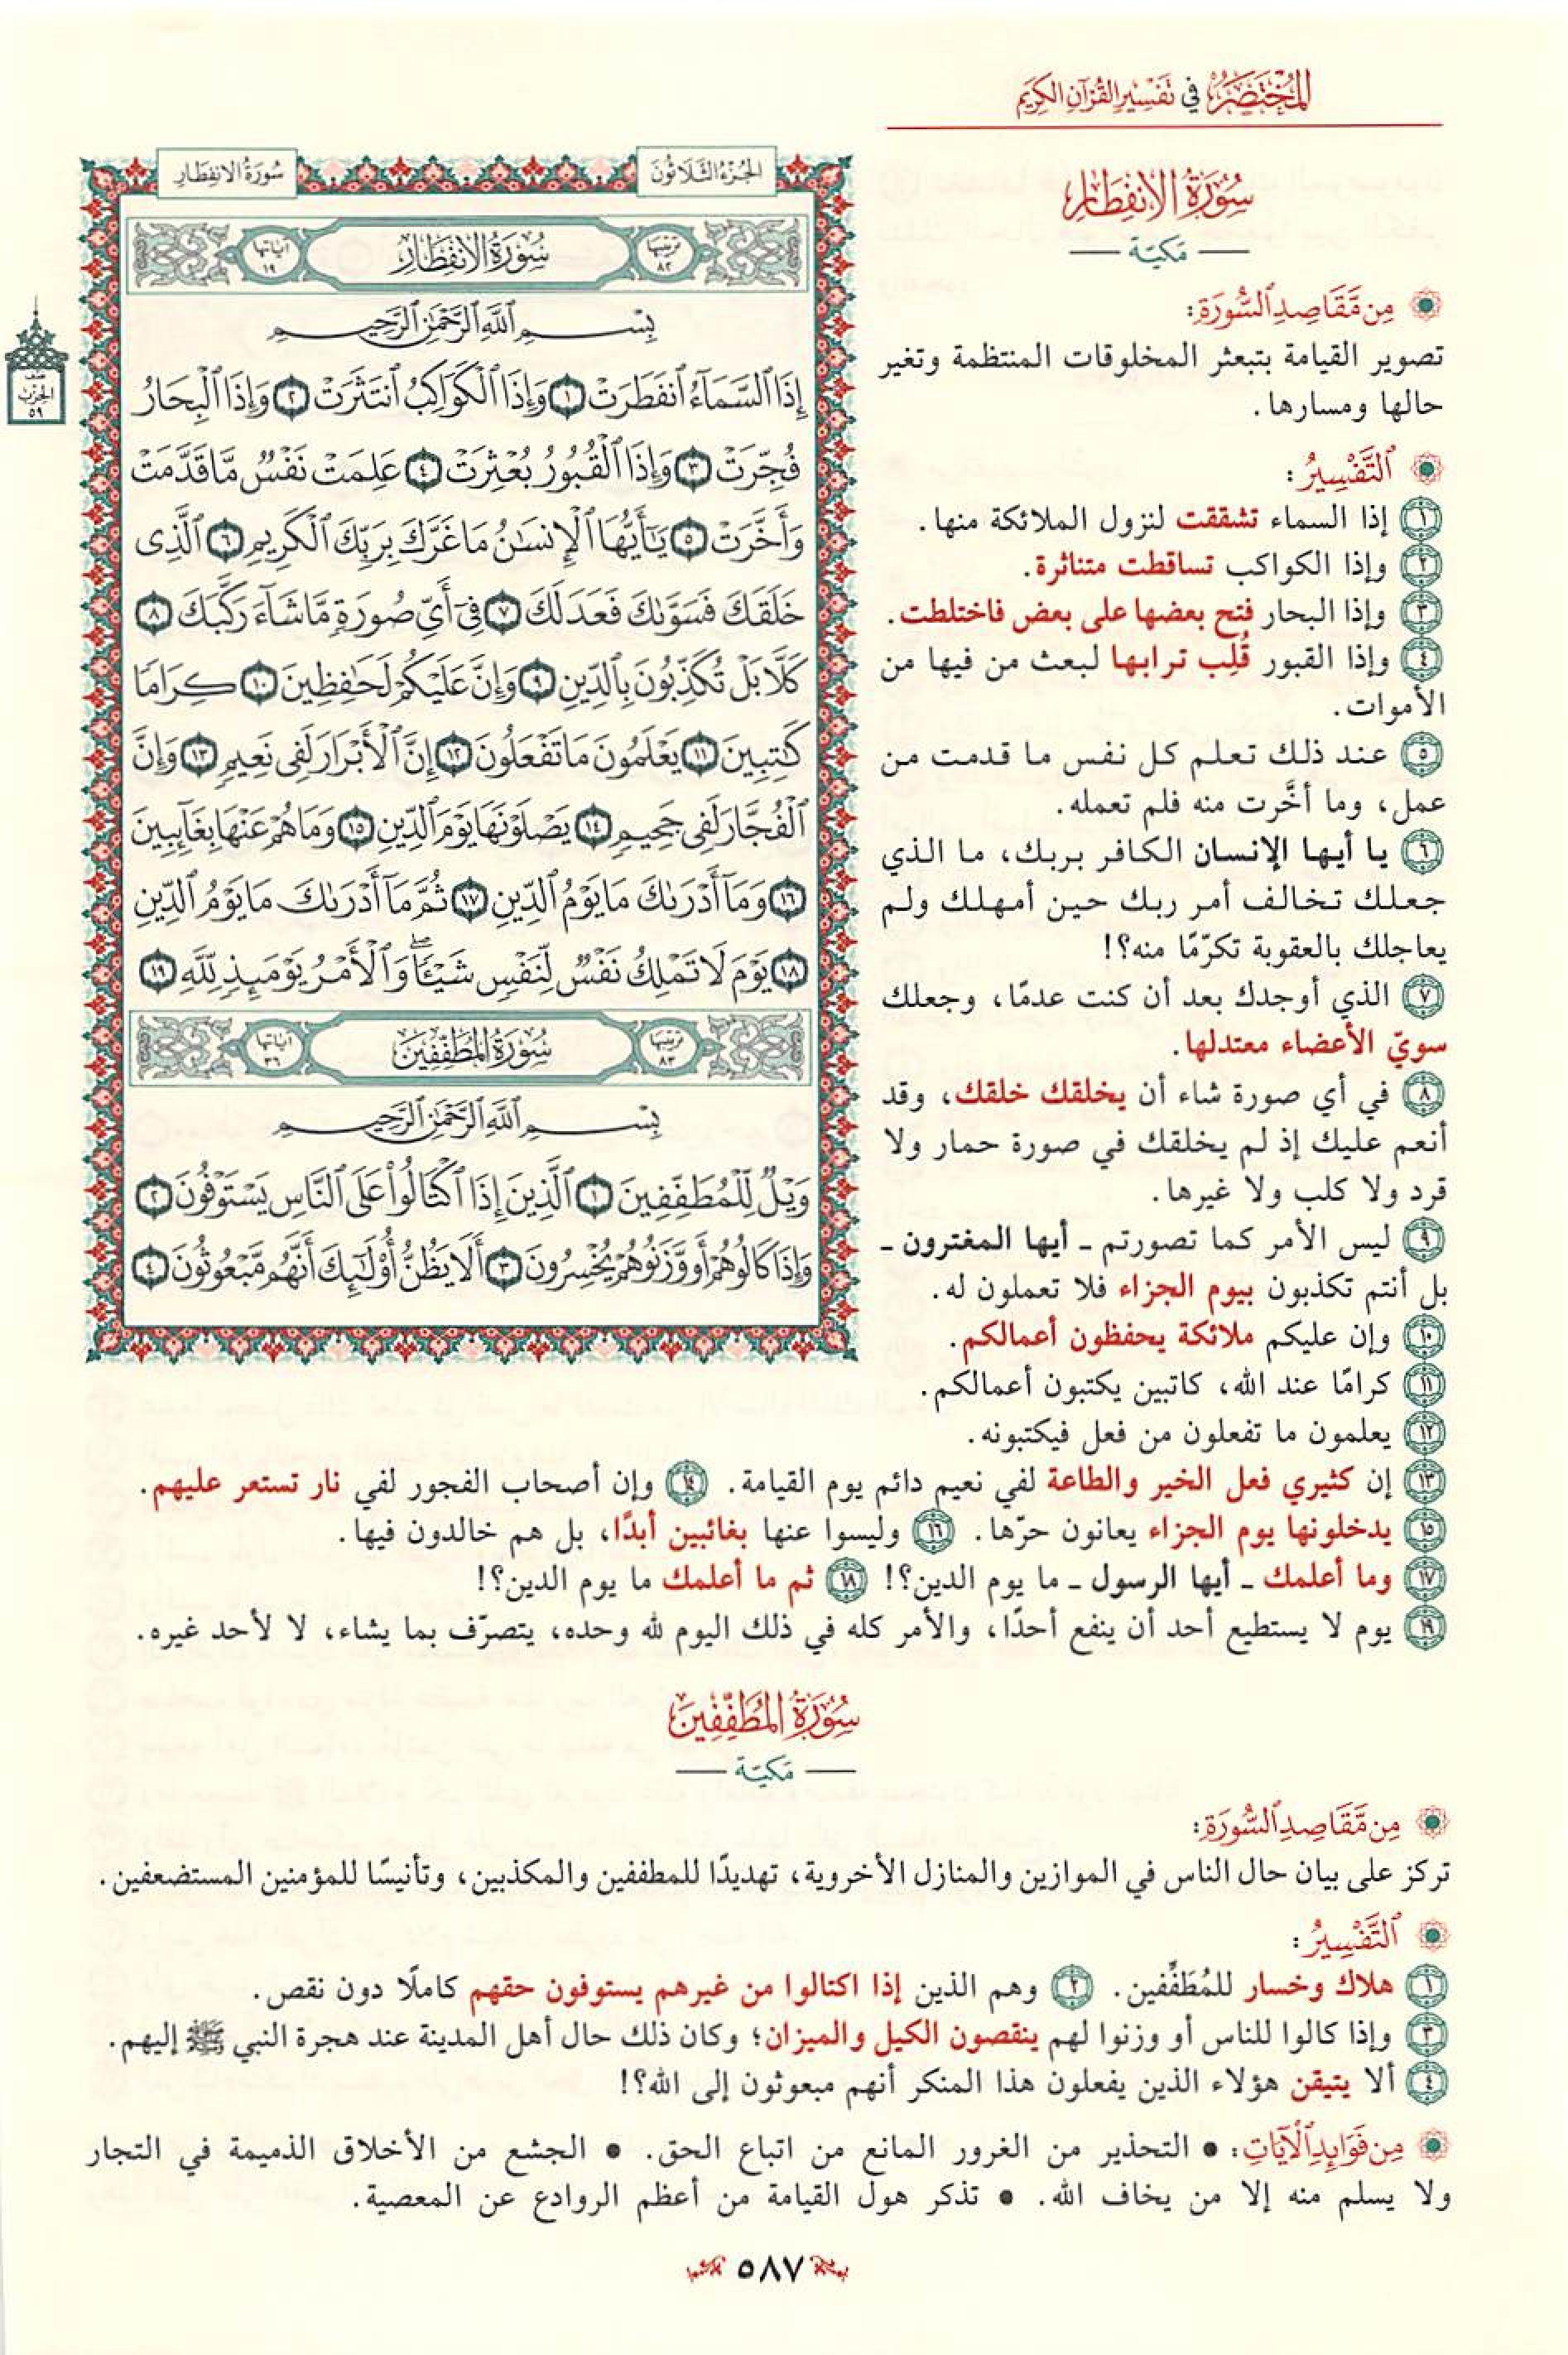 المختصر في تفسير القرآن الكريم
الجزء الثلاثون
سورة الانفطار
سورة الانفطار
ترتيبها ٨٢
آياتها ١٩
بِسْمِ ٱللَّهِ ٱلرَّحْمَٰنِ ٱلرَّحِيمِ
إِذَا ٱلسَّمَآءُ ٱنفَطَرَتْ ١ وَإِذَا ٱلْكَوَاكِبُ ٱنتَثَرَتْ ٢ وَإِذَا ٱلْبِحَارُ
فُجِّرَتْ ٣ وَإِذَا ٱلْقُبُورُ بُعْثِرَتْ ٤ عَلِمَتْ نَفْسٌ مَّا قَدَّمَتْ
وَأَخَّرَتْ ٥ يَٰٓأَيُّهَا ٱلْإِنسَٰنُ مَا غَرَّكَ بِرَبِّكَ ٱلْكَرِيمِ ٦ ٱلَّذِى
خَلَقَكَ فَسَوَّىٰكَ فَعَدَلَكَ ٧ فِىٓ أَىِّ صُورَةٍ مَّا شَآءَ رَكَّبَكَ ٨
كَلَّا بَلْ تُكَذِّبُونَ بِٱلدِّينِ ٩ وَإِنَّ عَلَيْكُمْ لَحَٰفِظِينَ ١٠ كِرَامًا
كَٰتِبِينَ ١١ يَعْلَمُونَ مَا تَفْعَلُونَ ١٢ إِنَّ ٱلْأَبْرَارَ لَفِى نَعِيمٍ ١٣ وَإِنَّ
ٱلْفُجَّارَ لَفِى جَحِيمٍ ١٤ يَصْلَوْنَهَا يَوْمَ ٱلدِّينِ ١٥ وَمَا هُمْ عَنْهَا بِغَآئِبِينَ
١٦ وَمَآ أَدْرَىٰكَ مَا يَوْمُ ٱلدِّينِ ١٧ ثُمَّ مَآ أَدْرَىٰكَ مَا يَوْمُ ٱلدِّينِ
١٨ يَوْمَ لَا تَمْلِكُ نَفْسٌ لِّنَفْسٍ شَيْـًٔا ۖ وَٱلْأَمْرُ يَوْمَئِذٍ لِّلَّهِ ١٩
سورة المطففين
ترتيبها ٨٣
آياتها ٣٦
بِسْمِ ٱللَّهِ ٱلرَّحْمَٰنِ ٱلرَّحِيمِ
وَيْلٌ لِّلْمُطَفِّفِينَ ١ ٱلَّذِينَ إِذَا ٱكْتَالُوا۟ عَلَى ٱلنَّاسِ يَسْتَوْفُونَ ٢
وَإِذَا كَالُوهُمْ أَو وَّزَنُوهُمْ يُخْسِرُونَ ٣ أَلَا يَظُنُّ أُو۟لَٰٓئِكَ أَنَّهُم مَّبْعُوثُونَ ٤
نصف
الحزب
٥٩
سورة الانفطار
مكية
من مقاصد السورة:
تصوير القيامة بتبعثر المخلوقات المنتظمة وتغير
حالها ومسارها.
التفسير:
١ إذا السماء تشققت لنزول الملائكة منها.
٢ وإذا الكواكب تساقطت متناثرة.
٣ وإذا البحار فتح بعضها على بعض فاختلطت.
٤ وإذا القبور قُلِب ترابها لبعث من فيها من
الأموات.
٥ عند ذلك تعلم كل نفس ما قدمت من
عمل، وما أخَّرت منه فلم تعمله.
٦ يا أيها الإنسان الكافر بربك، ما الذي
جعلك تخالف أمر ربك حين أمهلك ولم
يعاجلك بالعقوبة تكرّمًا منه؟!
٧ الذي أوجدك بعد أن كنت عدمًا، وجعلك
سويّ الأعضاء معتدلها.
٨ في أي صورة شاء أن يخلقك خلقك، وقد
أنعم عليك إذ لم يخلقك في صورة حمار ولا
قرد ولا كلب ولا غيرها.
٩ ليس الأمر كما تصورتم ـ أيها المغترون ـ
بل أنتم تكذبون بيوم الجزاء فلا تعملون له.
١٠ وإن عليكم ملائكة يحفظون أعمالكم.
١١ كرامًا عند الله، كاتبين يكتبون أعمالكم.
١٢ يعلمون ما تفعلون من فعل فيكتبونه.
١٣ إن كثيري فعل الخير والطاعة لفي نعيم دائم يوم القيامة. ١٤ وإن أصحاب الفجور لفي نار تستعر عليهم.
١٥ يدخلونها يوم الجزاء يعانون حرّها. ١٦ وليسوا عنها بغائبين أبدًا، بل هم خالدون فيها.
١٧ وما أعلمك ـ أيها الرسول ـ ما يوم الدين؟! ١٨ ثم ما أعلمك ما يوم الدين؟!
١٩ يوم لا يستطيع أحد أن ينفع أحدًا، والأمر كله في ذلك اليوم لله وحده، يتصرّف بما يشاء، لا لأحد غيره.
سورة المطففين
مكية
من مقاصد السورة:
تركز على بيان حال الناس في الموازين والمنازل الأخروية، تهديدًا للمطففين والمكذبين، وتأنيسًا للمؤمنين المستضعفين.
التفسير:
١ هلاك وخسار للمُطَفِّفين. ٢ وهم الذين إذا اكتالوا من غيرهم يستوفون حقهم كاملًا دون نقص.
٣ وإذا كالوا للناس أو وزنوا لهم ينقصون الكيل والميزان؛ وكان ذلك حال أهل المدينة عند هجرة النبي ﷺ إليهم.
٤ ألا يتيقن هؤلاء الذين يفعلون هذا المنكر أنهم مبعوثون إلى الله؟!
من فوائد الآيات: • التحذير من الغرور المانع من اتباع الحق. • الجشع من الأخلاق الذميمة في التجار
ولا يسلم منه إلا من يخاف الله. • تذكر هول القيامة من أعظم الروادع عن المعصية.
٥٨٧